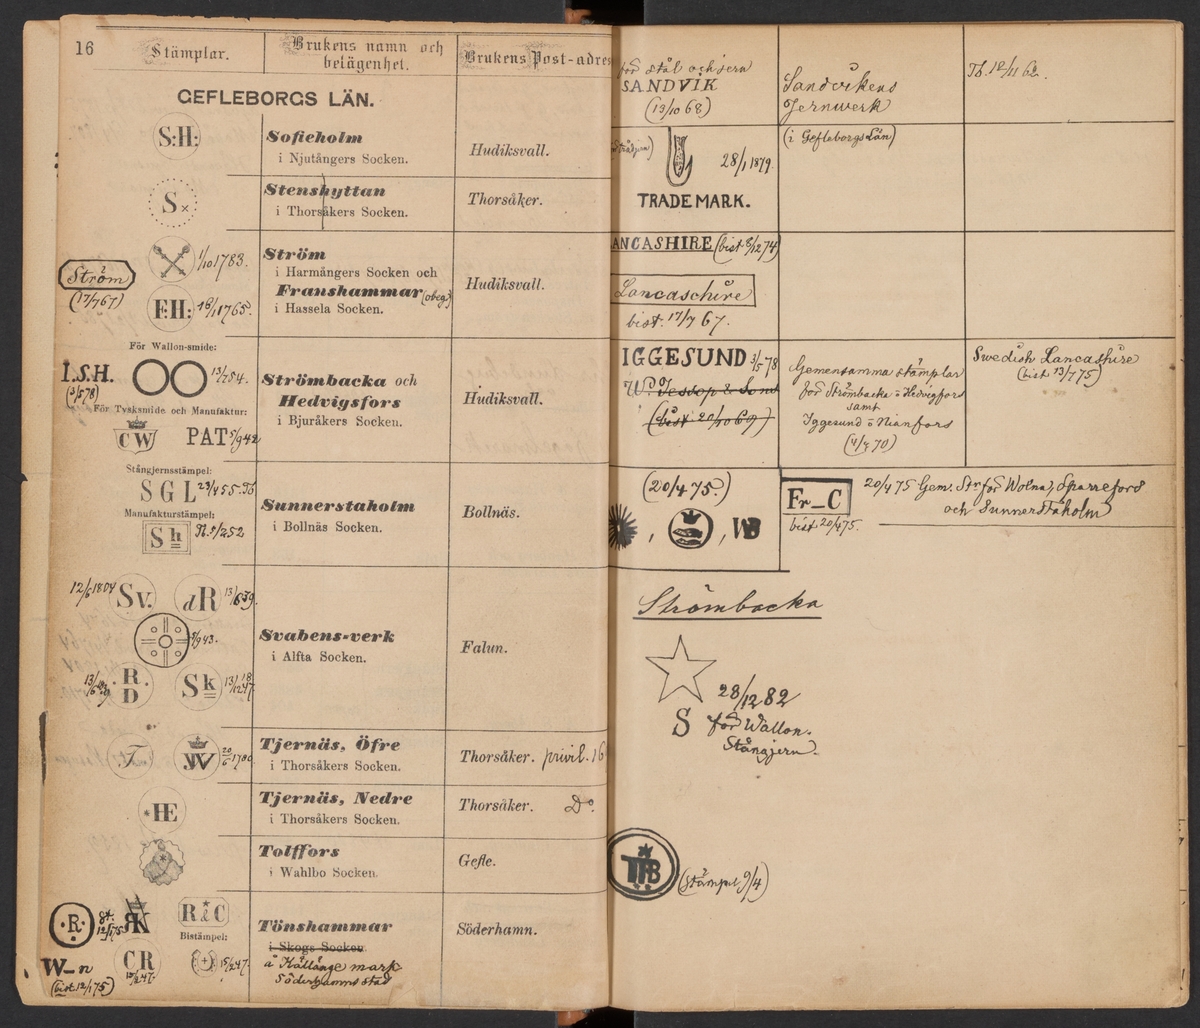 16
Stämplar.
Brukens namn och
belägenhet.
Brukens Post-adres
GEFLEBORGS LÄN.
S:H:
Sofieholm
i Njutångers Socken.
Hudiksvall.
S×
Stenshyttan
i Thorsåkers Socken.
Thorsåker.
Ström
(17/7 67)
1/10 1783.
F:H:
18/11 1765.
Ström
i Harmångers Socken och
Franshammar (obeg)
i Hassela Socken.
Hudiksvall.
För Wallon-smide:
I.S.H.
(3/5 78)
13/7 54.
För Tysksmide och Manufaktur:
CW
PAT 5/9 42
Strömbacka och
Hedvigsfors
i Bjuråkers Socken.
Hudiksvall.
Stångjernsstämpel:
S G L 23/4 55.
Manufakturstämpel:
Sh
Sunnerstaholm
i Bollnäs Socken.
Bollnäs.
12/6 1804
Sv.
dR
13/6 39.
5/9 43.
.R.
D
Sk
Svabens-verk
i Alfta Socken.
Falun.
T
W
20/6 1700
Tjernäs, Öfre
i Thorsåkers Socken.
Thorsåker. privil. 16
*HE
Tjernäs, Nedre
i Thorsåkers Socken.
Thorsåker. Do.
Tolffors
i Wahlbo Socken.
Gefle.
.R.
RK
R & C
Bistämpel:
W_n
(bist 12/1 75)
CR
15/2 47.
15/2 47.
Tönshammar
i Skogs Socken.
å Källänge mark
Söderhamns stad
Söderhamn.
för stål och jern
SANDVIK
(13/10 68)
Sandvikens
Jernwerk
Tb. 12/11 62.
28/1 1879.
TRADE MARK.
(i Gefleborgs Län)
ANCASHIRE (bist 8/12 74)
Lancaschire
bist. 17/7 67.
IGGESUND 3/5 78
Wm. Jessop & Sons
(bist 20/10 69)
Gemensamma stämplar
för Strömbacka o Hedvigfors
samt
Iggesund o Nianfors
(4/7 70)
Swedish Lancashire
(bist 13/7 75)
(20/4 75.)
, , WB
Fr_C
bist 20/4 75.
20/4 75 Gem. Str för Wolna, Sparreford
och Sunnerstaholm
Strömbacka
28/12 82
S för Wallon-
Stångjern.
TFB
(Stämpel 9/4)